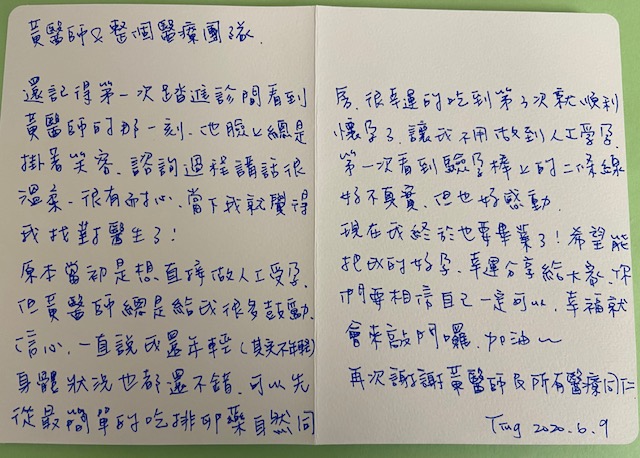 黃醫師&整個醫療團隊.
還記得第一次踏進診間看到
黃醫師的那一刻.他臉上總是
掛著笑容.諮詢過程講話很
溫柔.很有耐心.當下我就覺得
我找對醫生了!
原本當初是想直接做人工受孕.
但黃醫師總是給我很多鼓勵.
信心.一直說我還年輕(其實不年輕)
身體狀況也都還不錯.可以先
從最簡單的吃排卵藥自然同
房.很幸運的吃到第3次就順利
懷孕了.讓我不用做到人工受孕.
第一次看到驗孕棒上的二條線
好不真實.但也好感動.
現在我終於也要畢業了!希望能
把我的好孕.幸運分享給大家.你
們要相信自己一定可以.幸福就
會來敲門囉.加油~
再次謝謝黃醫師及所有醫療同仁.
Ting 2020.6.9